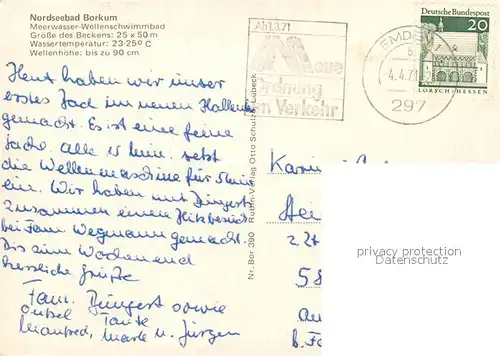 Nordseebad Borkum
Meerwasser-Wellenschwimmbad
Größe des Beckens: 25 x 50 m
Wassertemperatur: 23-25° C
Wellenhöhe: bis zu 90 cm
Heut haben wir unser
erstes Bad im neuen Hallenbad
gemacht. Es ist eine feine
Sache. Alle 15 Min. setzt
die Wellenmaschine für 5 Min
ein. Wir haben mit Büngerts
zusammen einen Kitzbesuch
bei Fam. Wegmann gemacht.
Bis zum Wochenend
herzliche Grüße
Fam. Büngert sowie
Onkel Tante
Manfred, u. Jürgen
Nr. Bor 390 Rubin-Verlag Otto Schulze, Lübeck
Ab 1.3.71
Neue
Ordnung
im Verkehr
EMDEN 1
4.4.71
297
Deutsche Bundespost
20
LORSCH/HESSEN
58
privacy protection
Datenschutz